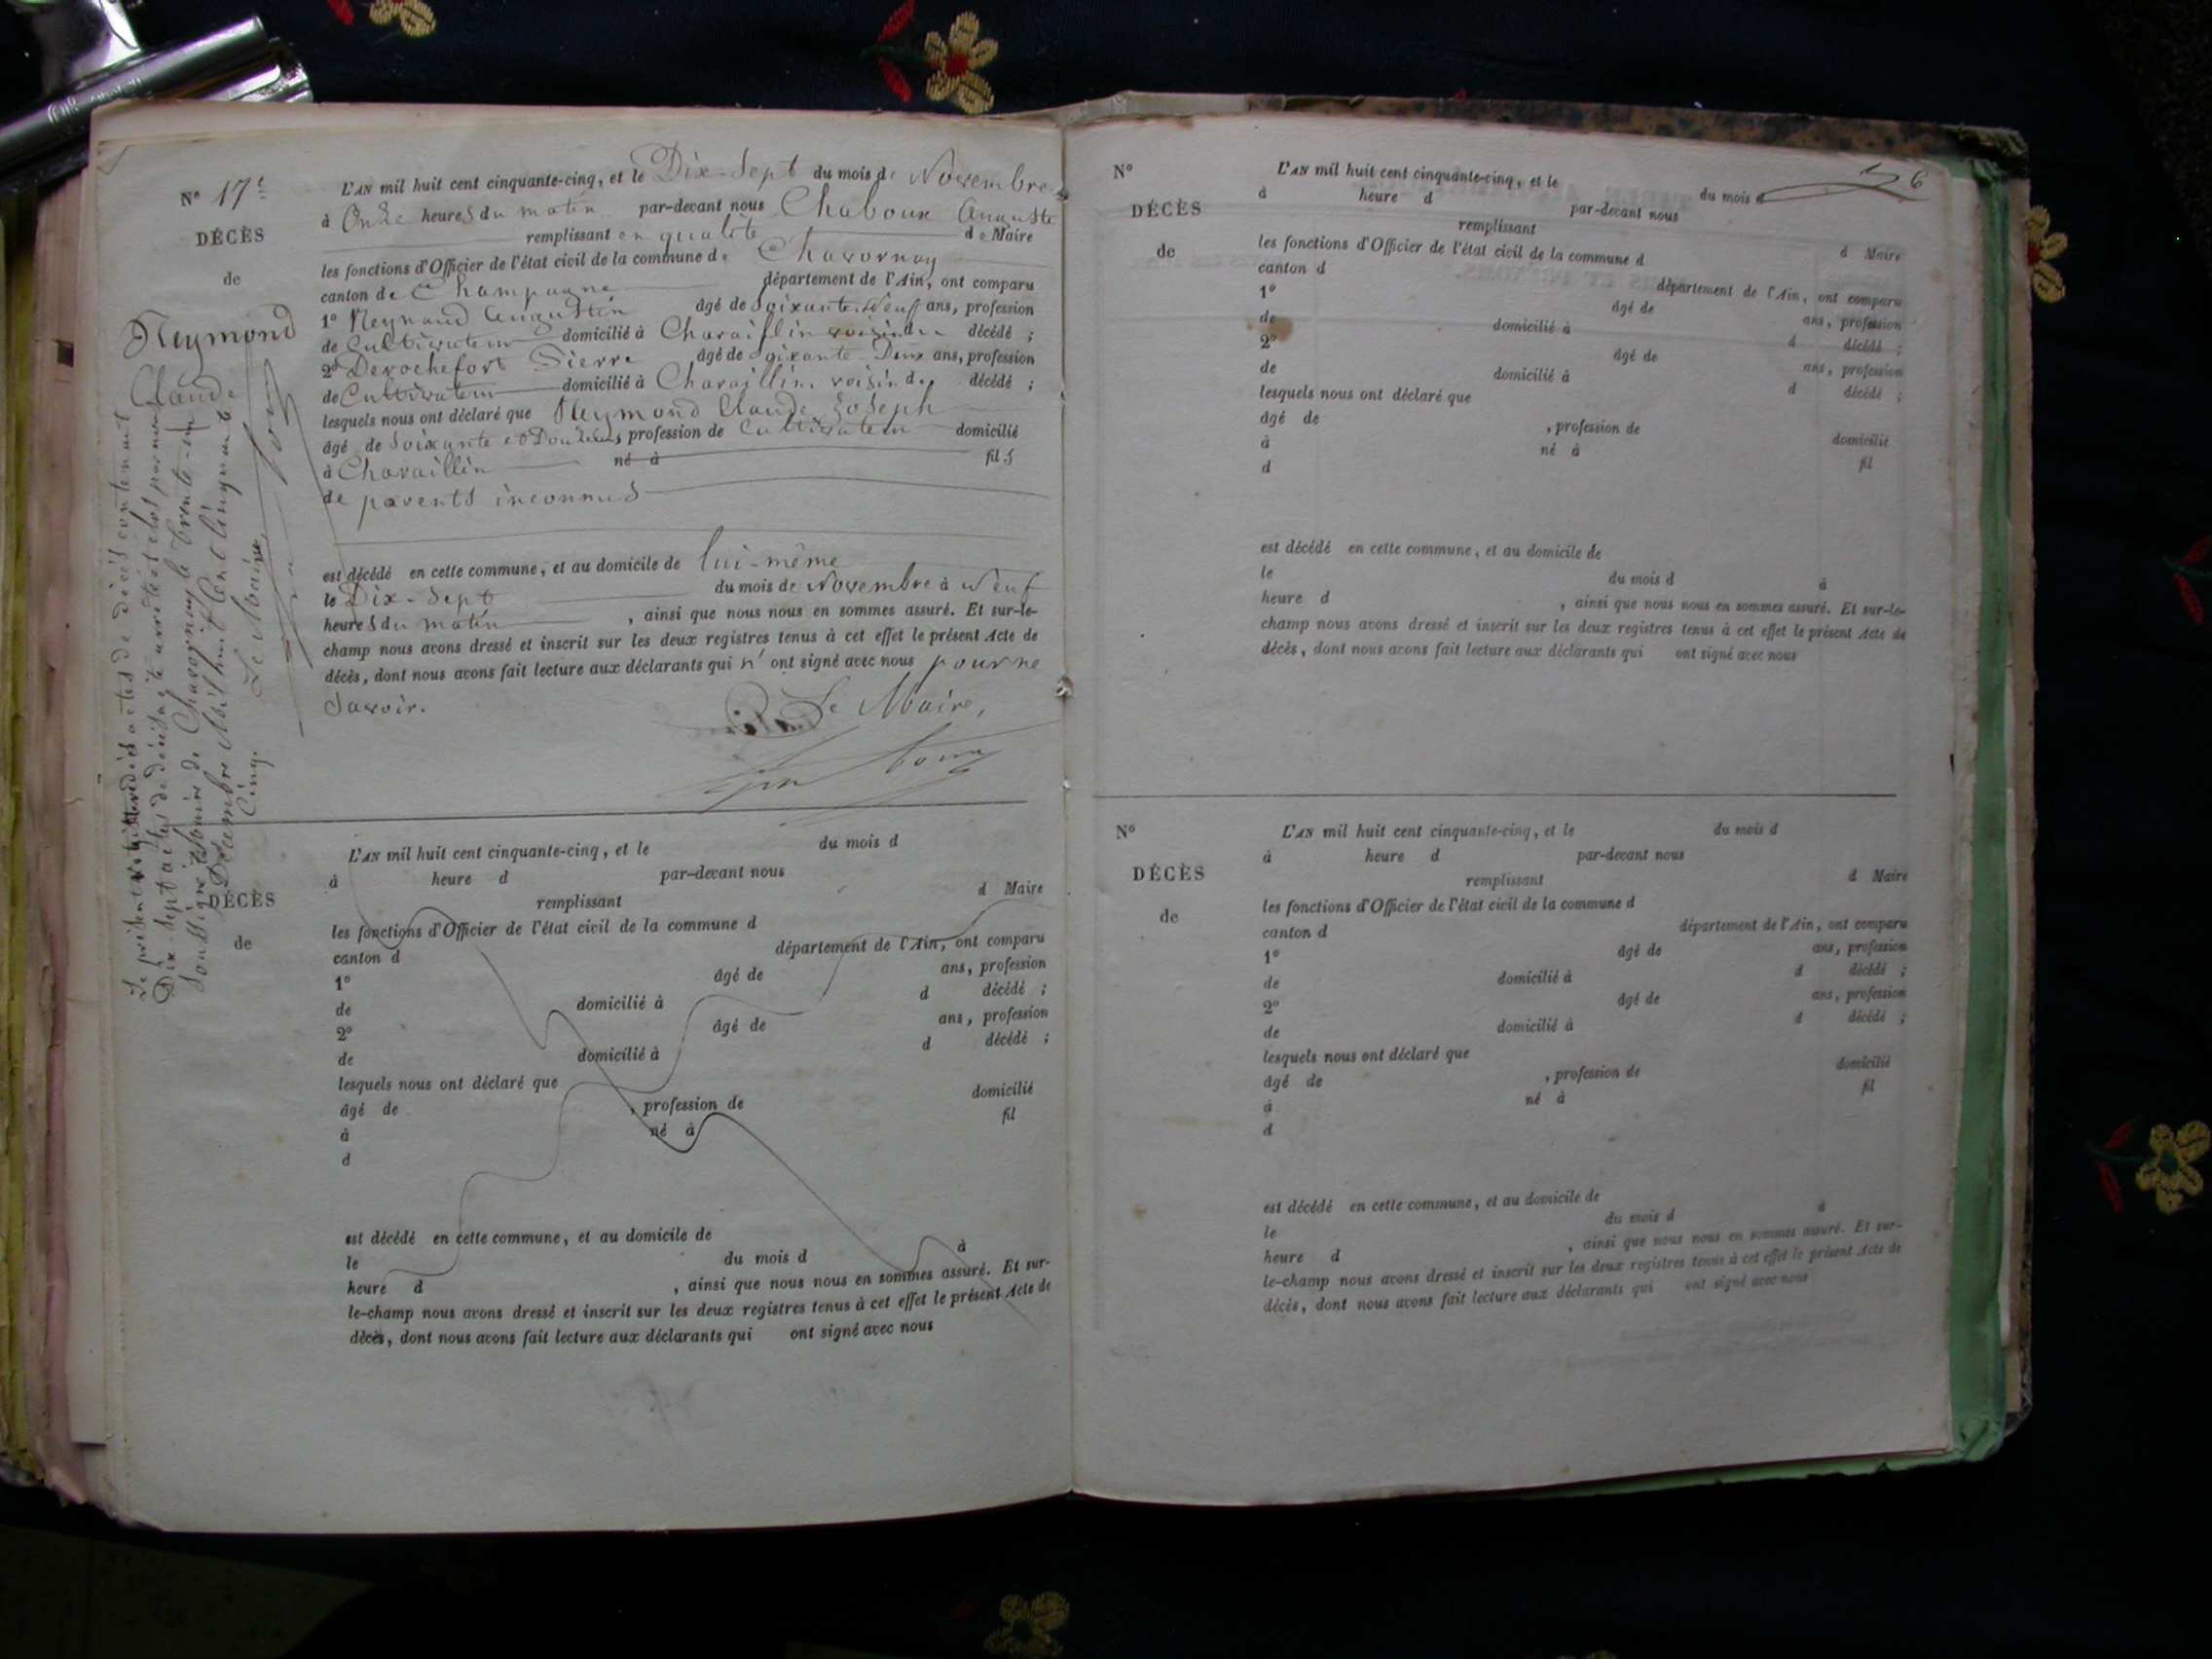 N° 17e
DÉCÈS
de
Reymond
Claude
L'AN mil huit cent cinquante-cinq, et le Dix-Sept du mois de Novembre
à Onze heures du matin par-devant nous Chaboux Auguste
remplissant en qualité de Maire
les fonctions d'Officier de l'état civil de la commune de Chavornay
canton de Champagne département de l'Ain, ont comparu
1° Reynaud Augustin âgé de Soixante-Neuf ans, profession
de Cultivateur domicilié à Charaillin voisin du décédé ;
2° Derochefort Pierre âgé de Soixante Deux ans, profession
de Cultivateur domicilié à Charaillin, voisin du décédé ;
lesquels nous ont déclaré que Reymond Claude Joseph
âgé de Soixante et Douze ans, profession de Cultivateur domicilié
à Charaillin né à fils
de parents inconnus
est décédé en cette commune, et au domicile de lui-même
le Dix-Sept du mois de Novembre à Neuf
heures du matin, ainsi que nous nous en sommes assuré. Et sur-le-
champ nous avons dressé et inscrit sur les deux registres tenus à cet effet le présent Acte de
décès, dont nous avons fait lecture aux déclarants qui n'ont signé avec nous pour ne
savoir.
Le Maire,
Le présent registre des actes de décès contenant
Dix-Sept actes de décès a été arrêté et clos par nous
Soussigné Maire de Chavornay le trente-un
Décembre Mil huit Cent Cinquante
Cinq. Le Maire,
DÉCÈS
de
L'AN mil huit cent cinquante-cinq, et le du mois d
à heure d par-devant nous
remplissant d Maire
les fonctions d'Officier de l'état civil de la commune d
canton d département de l'Ain, ont comparu
1° âgé de ans, profession
de domicilié à d décédé ;
2° âgé de ans, profession
de domicilié à d décédé ;
lesquels nous ont déclaré que
âgé de , profession de domicilié
à né à fil
d
est décédé en cette commune, et au domicile de
le du mois d à
heure d , ainsi que nous nous en sommes assuré. Et sur-
le-champ nous avons dressé et inscrit sur les deux registres tenus à cet effet le présent Acte de
décès, dont nous avons fait lecture aux déclarants qui ont signé avec nous
6
N°
DÉCÈS
de
L'AN mil huit cent cinquante-cinq, et le du mois d
à heure d par-devant nous
remplissant d Maire
les fonctions d'Officier de l'état civil de la commune d
canton d département de l'Ain, ont comparu
1° âgé de ans, profession
de domicilié à d décédé ;
2° âgé de ans, profession
de domicilié à d décédé ;
lesquels nous ont déclaré que
âgé de , profession de domicilié
à né à fil
d
est décédé en cette commune, et au domicile de
le du mois d à
heure d , ainsi que nous nous en sommes assuré. Et sur-le-
champ nous avons dressé et inscrit sur les deux registres tenus à cet effet le présent Acte de
décès, dont nous avons fait lecture aux déclarants qui ont signé avec nous
N°
DÉCÈS
de
L'AN mil huit cent cinquante-cinq, et le du mois d
à heure d par-devant nous
remplissant d Maire
les fonctions d'Officier de l'état civil de la commune d
canton d département de l'Ain, ont comparu
1° âgé de ans, profession
de domicilié à d décédé ;
2° âgé de ans, profession
de domicilié à d décédé ;
lesquels nous ont déclaré que
âgé de , profession de domicilié
à né à fil
d
est décédé en cette commune, et au domicile de
le du mois d à
heure d , ainsi que nous nous en sommes assuré. Et sur-
le-champ nous avons dressé et inscrit sur les deux registres tenus à cet effet le présent Acte de
décès, dont nous avons fait lecture aux déclarants qui ont signé avec nous